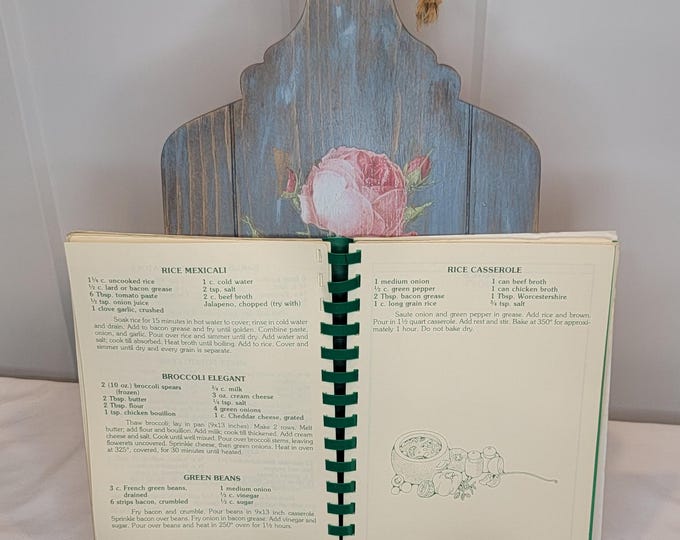 RICE MEXICALI
1¼ c. uncooked rice
½ c. lard or bacon grease
6 Tbsp. tomato paste
½ tsp. onion juice
1 clove garlic, crushed
1 c. cold water
2 tsp. salt
2 c. beef broth
Jalapeno, chopped (try with)
Soak rice for 15 minutes in hot water to cover; rinse in cold water
and drain. Add to bacon grease and fry until golden. Combine paste,
onion, and garlic. Pour over rice and simmer until dry. Add water and
salt; cook till absorbed. Heat broth until boiling. Add to rice. Cover and
simmer until dry and every grain is separate.
BROCCOLI ELEGANT
2 (10 oz.) broccoli spears
(frozen)
2 Tbsp. butter
2 Tbsp. flour
1 tsp. chicken bouillon
¾ c. milk
3 oz. cream cheese
¼ tsp. salt
4 green onions
1 c. Cheddar cheese, grated
Thaw broccoli; lay in pan (9x13 inches). Make 2 rows. Melt
butter; add flour and bouillon. Add milk; cook till thickened. Add cream
cheese and salt. Cook until well mixed. Pour over broccoli stems, leaving
flowerets uncovered. Sprinkle cheese, then green onions. Heat in oven
at 325°, covered, for 30 minutes until heated.
GREEN BEANS
3 c. French green beans,
drained
6 strips bacon, crumbled
1 medium onion
½ c. vinegar
½ c. sugar
Fry bacon and crumble. Pour beans in 9x13 inch casserole.
Sprinkle bacon over beans. Fry onion in bacon grease. Add vinegar and
sugar. Pour over beans and heat in 250° oven for 1½ hours.
RICE CASSEROLE
1 medium onion
½ c. green pepper
2 Tbsp. bacon grease
1 c. long grain rice
1 can beef broth
1 can chicken broth
1 Tbsp. Worcestershire
¾ tsp. salt
Saute onion and green pepper in grease. Add rice and brown.
Pour in 1½ quart casserole. Add rest and stir. Bake at 350° for approxi-
mately 1 hour. Do not bake dry.